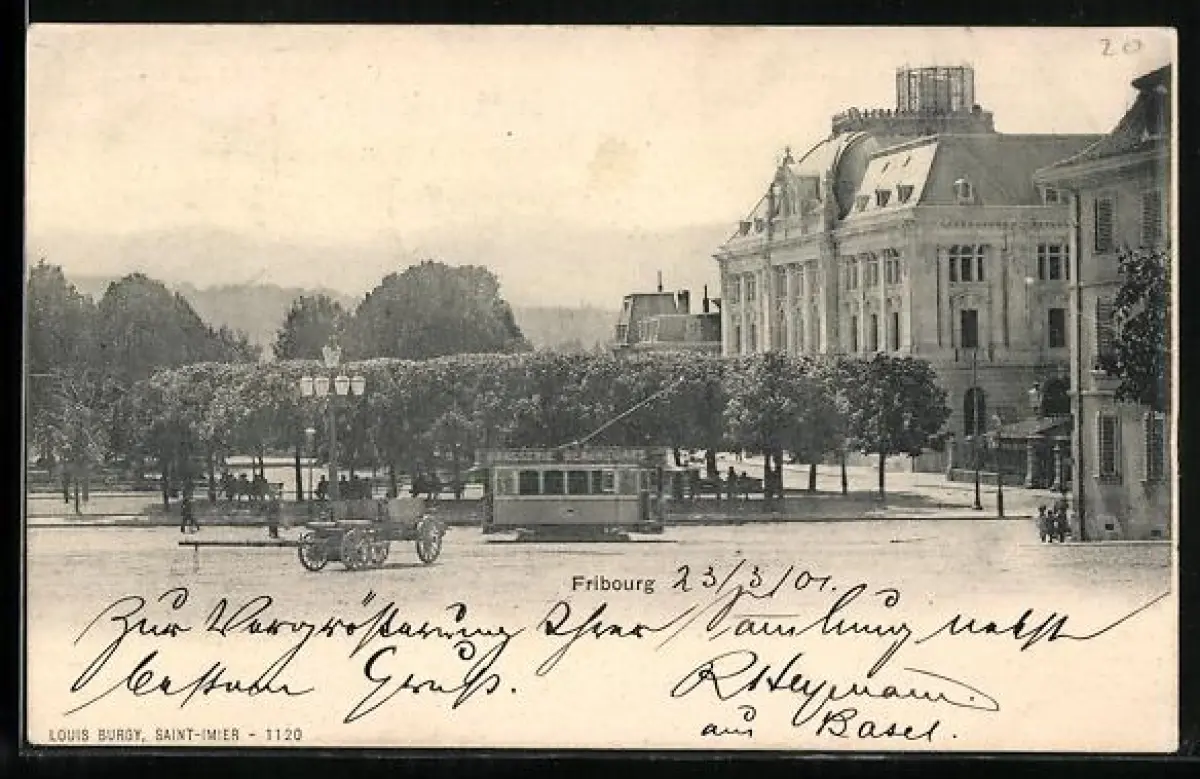 20
Fribourg 23/3/01.
Zur Vergrösserung Ihrer Samlung nebst
bestem Gruss. R Heymann.
aus Basel.
LOUIS BURGY, SAINT-IMIER - 1120